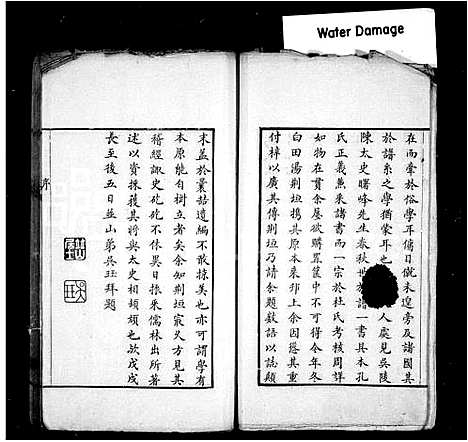 Water Damage
在而牽於俗學耳傳日僦未遑旁及諸國其
於譜系之學猶蒙耳也 人處見吳陵
陳太史曙峰先生春秋世族譜一書其本孔
氏正義兼采諸書而一宗於杜氏考核周詳
如物在貫余屢欲購置篋中不可得今年冬
白田湯荆垣攜其原本來邗上余因慫其重
付梓以廣其傳荆垣乃請余題數語以誌顛
末蓋於曩喆遺編不敢掠美也亦可謂學有
本原能自樹立者矣余知荆垣最久方見其
稽經諏史矻矻不休異日掞釆儒林出所著
述以資採獲其將與太史相頡頏也歟戊戌
長至後五日並山弟吳玨拜題
序